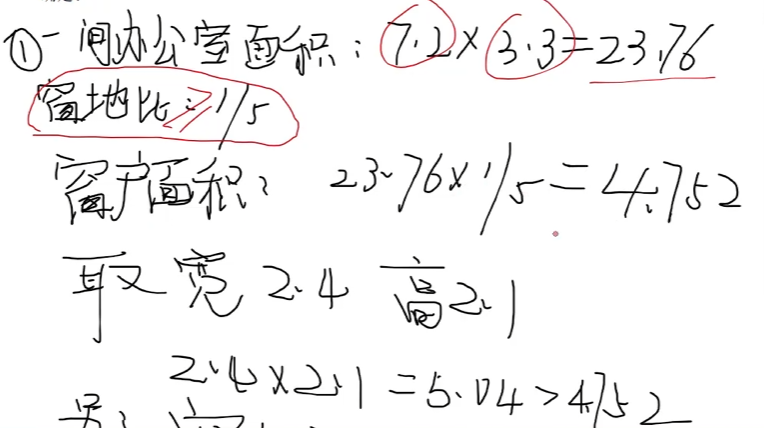 ①一间办公室面积:7.2×3.3=23.76
窗地比:≥1/5
窗户面积: 23.76×1/5=4.752
取宽2.4 高2.1
2.4×2.1=5.04>4.752